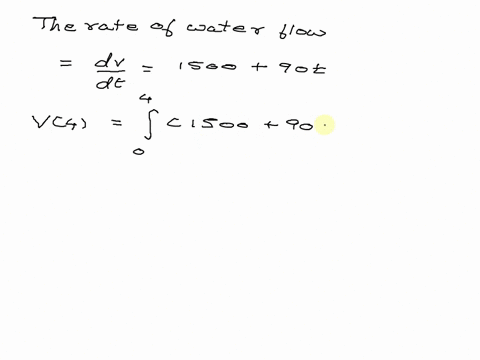 The rate of water flow
= dv/dt = 1500 + 90t
V(4) = ∫₀⁴ (1500 + 90